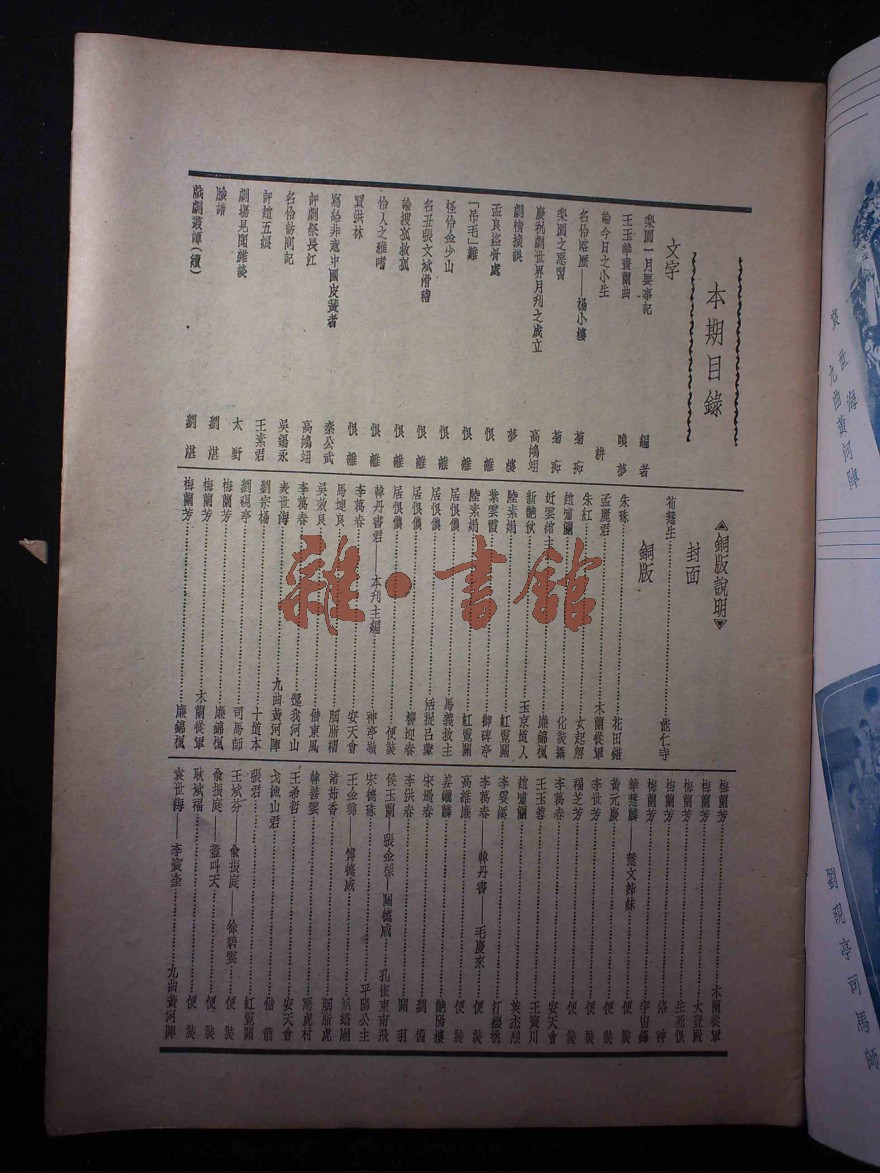 本期目錄
文字
梨園一月要事記 編者
王玉華賣蘭曲 曉夢
論今日之小生 耕
名伶略歷——楊小樓 菊痴
梨園之惡習 菊痴
慶祝劇世界月刊之成立 高鴻翊
劇情摘談 夢樓
孟良盜骨處 恨離
「吊毛」難 恨離
怪伶金少山 恨離
名丑張文斌滑稽 恨離
論搜孤救孤 恨離
伶人之雅嗜 恨離
洪林 恨離
寫給非 中國皮簧者 秦公武
評劇祭長江 高鴻翊
名伶訪問記 吳錫永
評趙五娘 王素君
劇場見聞雜談 太野
臉譜 劉湛
戲劇叢譚(續) 劉湛
▲銅版說明▼
封面
荀慧生……能仁寺
銅版
朱珠……花田錯
孟麗君……木蘭從軍
朱紅……女起解
趙嘯瀾……化裝攝
近雲館主……廉錦楓
新艷秋……玉京道人
陸素娟……虹霓關
紫雲霞……御碑亭
陸素娟……虹霓關
居恨儂……馬義救主
居恨儂……活捉呂蒙
居恨儂……柳迎春
居恨儂……便裝
韓丹書君——本刊主編
李萬春……神亭嶺
馬連良……安天會
吳效良……胭脂褶
李萬春……借東風
袁世海……還我河山
劉宗楊……九曲黃河陣
劉硯亭……十道本
梅蘭芳……司馬師
梅蘭芳……廉錦楓
梅蘭芳……木蘭從軍
廉錦楓
梅蘭芳……木蘭從軍
梅蘭芳……大登殿
梅蘭芳……生死恨
梅蘭芳……洛神
華慧麟……宇宙鋒
黃元慶——慧文姊妹……便裝
李世芳……便裝
福芝芳……便裝
李萬春……安天會
王玉蓉……王寶川
趙嘯瀾……英杰烈
李婉溪……打櫻桃
李萬春——韓丹書——毛慶來……便裝
高維廉……便裝
姜鐵麟……艷陽樓
宋遇春……劉備
李洪春……關羽
侯玉蘭——張金樑——關德咸……孔雀東南飛
宋德珠……平陽公主
王金璐——傅德威……蜈蚣廟
諸茹香……胭脂虎
韓善雲……惡虎村
王希哲……安天會
戈漁山君……借箭
張君……虹霓關
王斌芬——兪振庭——徐碧雲……便裝
兪振庭——蓋叫天……便裝
耿斌福……便裝
袁世海——李寶奎……九曲黃河陣
雜·書館
袁世海
九曲黃河陣
劉硯亭司馬師